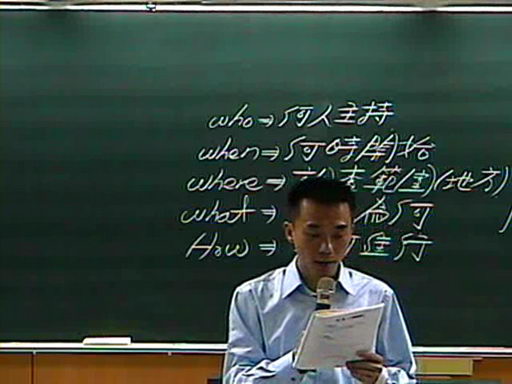 who⇒何人主持
when⇒何時開始
where⇒查範圍(地方)
what⇒為何
How⇒進行